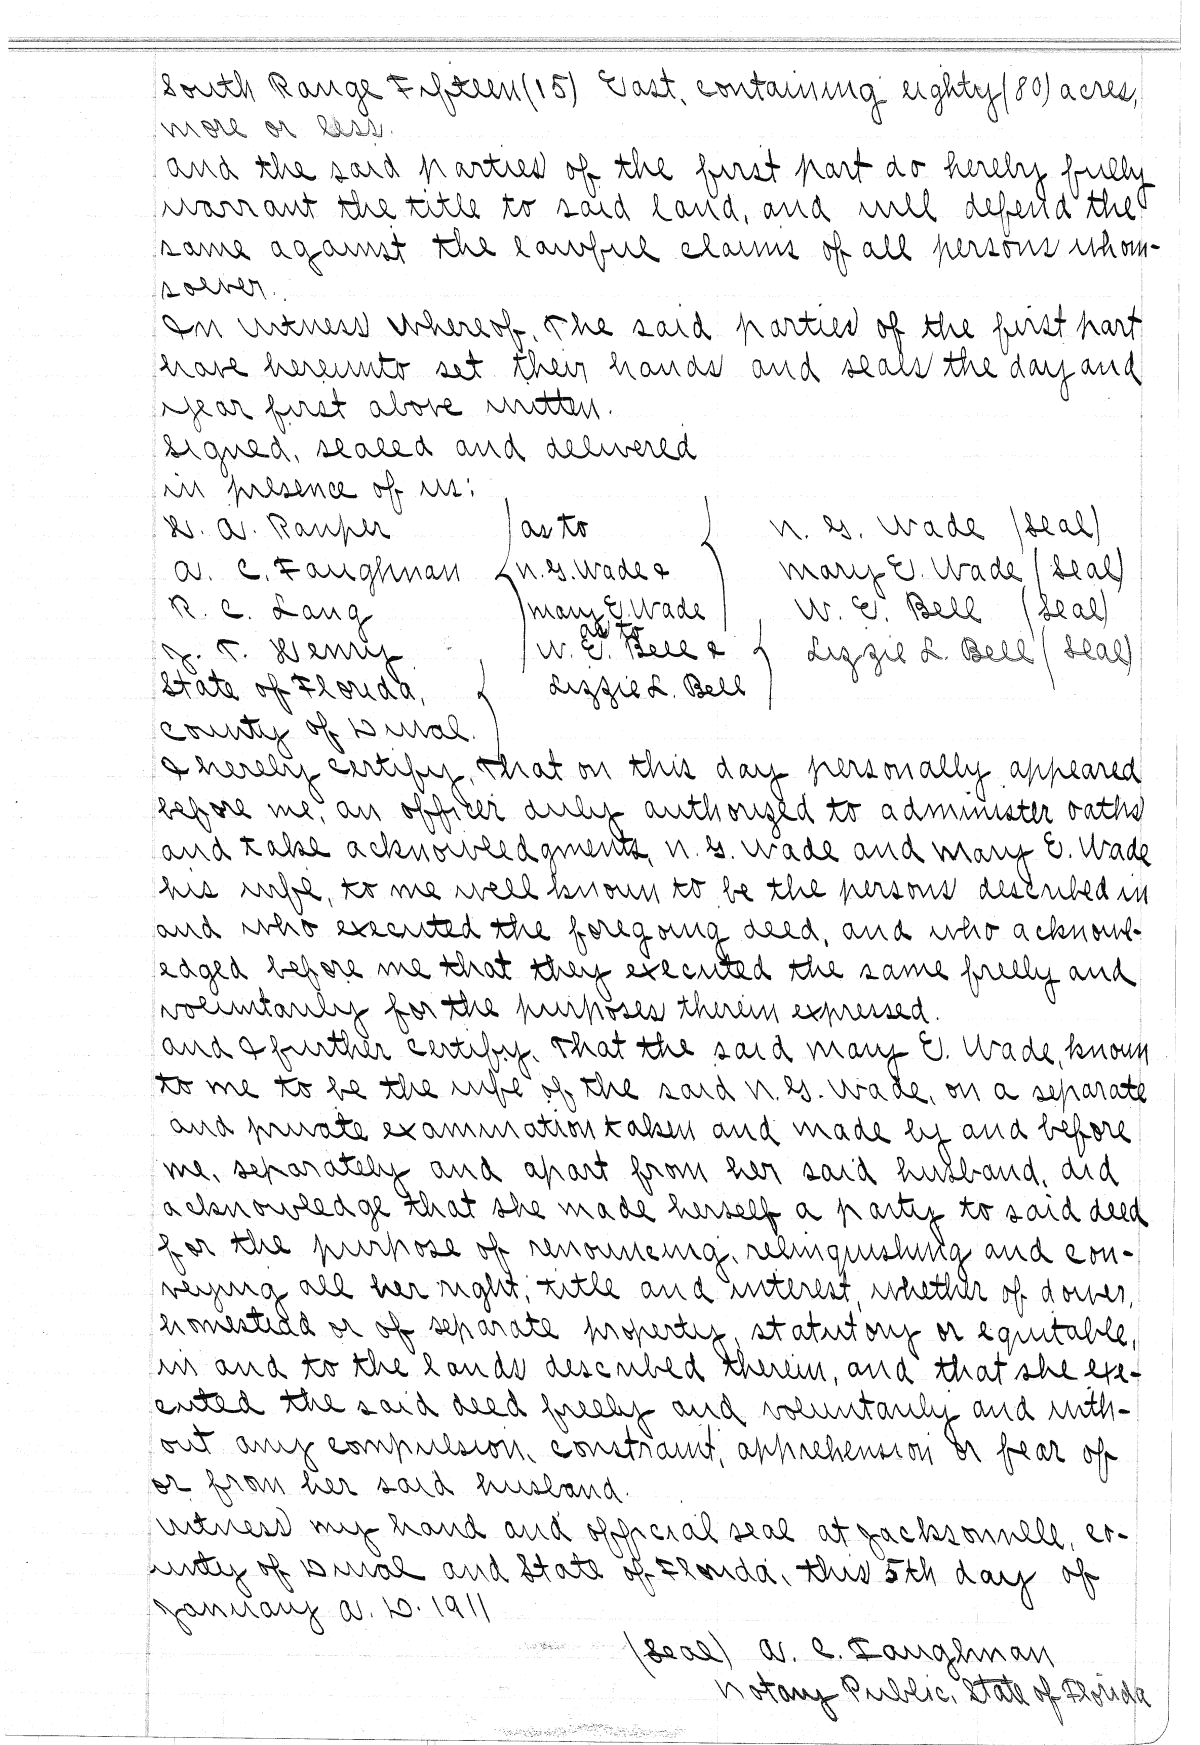 South Range Fifteen (15) East, containing eighty (80) acres,
more or less.
And the said parties of the first part do hereby fully
warrant the title to said land, and will defend the
same against the lawful claims of all persons whom-
soever.
In witness whereof, The said parties of the first part
have hereunto set their hands and seals the day and
year first above written.
Signed, sealed and delivered
in presence of us:
D. A. as to N. G. Wade (Seal)
A. C. Faughnan N. G. Wade & Mary E. Wade (Seal)
R. C. Lang Mary E. Wade W. E. Bell (Seal)
as to
J. T. Henry W. E. Bell & Lizzie L. Bell (Seal)
State of Florida, Lizzie L. Bell
County of Duval.
I hereby certify, That on this day personally appeared
before me, an officer duly authorized to administer oaths
and take acknowledgments, N. G. Wade and Mary E. Wade
his wife, to me well known to be the persons described in
and who executed the foregoing deed, and who acknowl-
edged before me that they executed the same freely and
voluntarily for the purposes therein expressed.
And I further certify, That the said Mary E. Wade, known
to me to be the wife of the said N. G. Wade, on a separate
and private examination taken and made by and before
me, separately and apart from her said husband, did
acknowledge that she made herself a party to said deed
for the purpose of renouncing, relinquishing and con-
veying all her right, title and interest, whether of dower,
homestead or of separate property, statutory or equitable,
in and to the lands described therein, and that she exe-
cuted the said deed freely and voluntarily and with-
out any compulsion, constraint, apprehension or fear of
or from her said husband.
Witness my hand and official seal at Jacksonville, co-
unty of Duval and State of Florida, this 5th day of
January A. D. 1911
(Seal) A. C. Faughnan
Notary Public, State of Florida